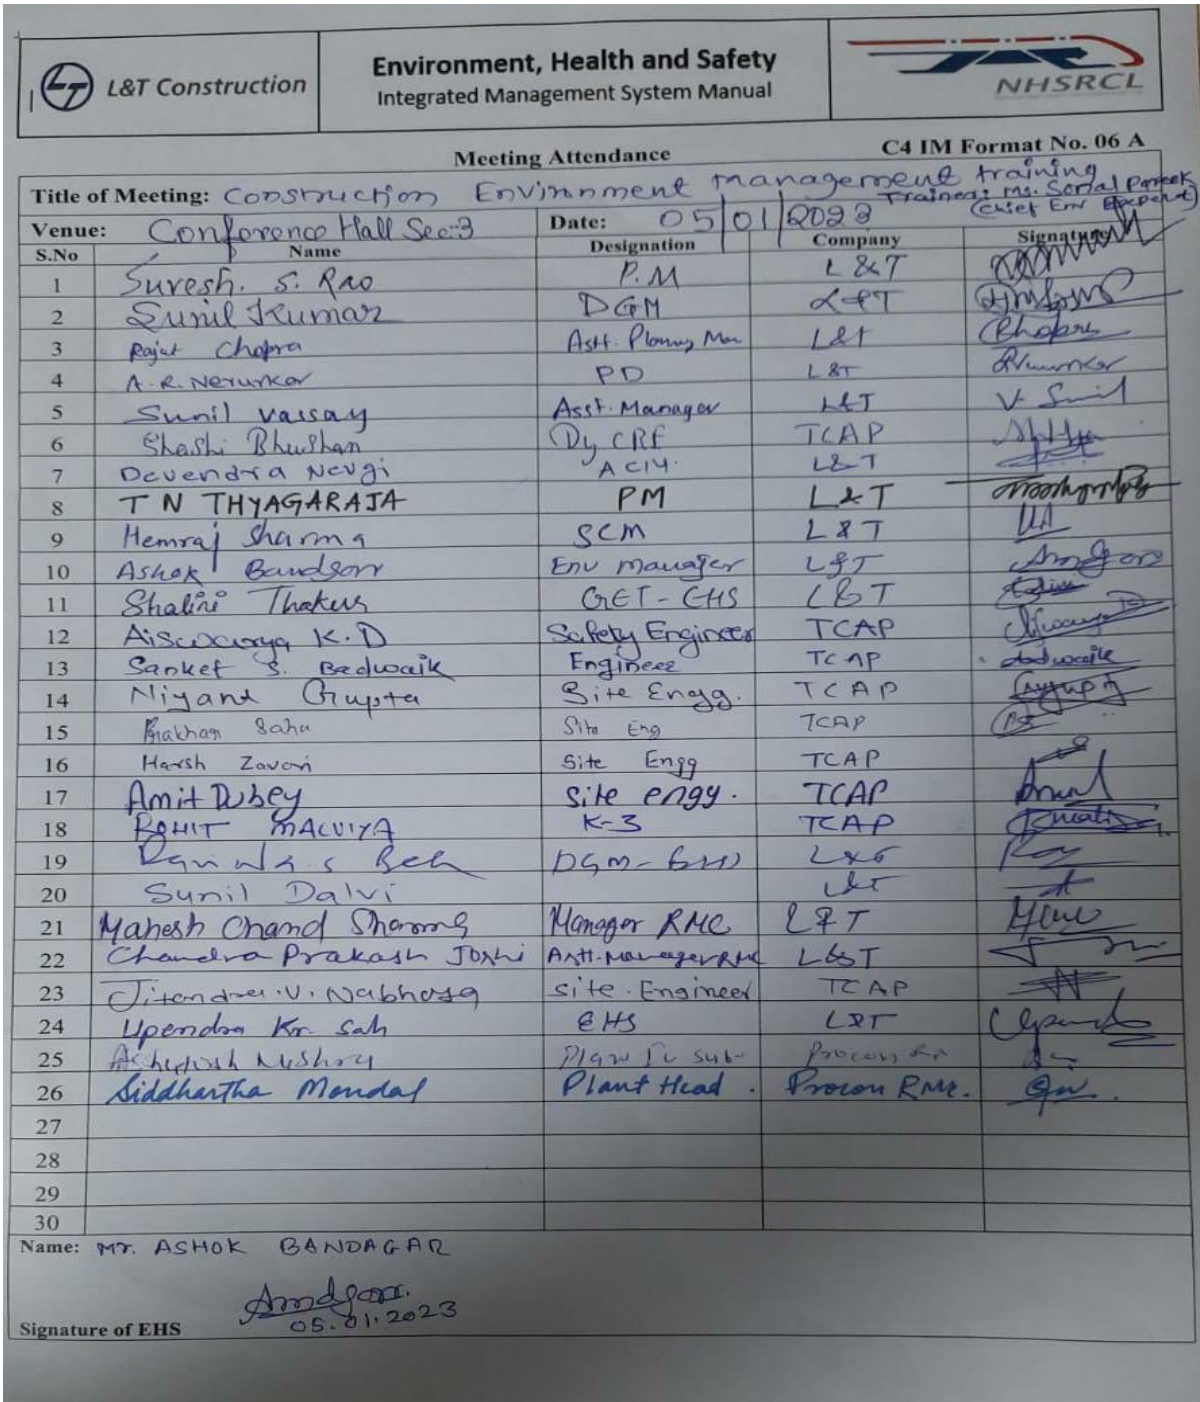 L&T Construction
Environment, Health and Safety
Integrated Management System Manual
NHSRCL
Meeting Attendance
C4 IM Format No. 06 A
Title of Meeting: Construction Environment management training
Trainer: Ms. Sonal Pareek
(Chief Env Expert)
Venue: Conference Hall Sec-3 Date: 05/01/2023
S.No Name Designation Company Signature
1 Suresh. S. Rao P.M L&T
2 Sunil Kumar DGM L&T
3 Rajat Chopra Astt. Planning Man L&T Chopra
4 A.R. Nerurkar PD L&T
5 Sunil Vassay Asst. Manager L&T V. Sunil
6 Shashi Bhushan Dy CRE TCAP
7 Devendra Nevgi L&T
8 T N THYAGARAJA PM L&T
9 Hemraj Sharma SCM L&T
10 Ashok L&T
11 Shalini Thakur GET-EHS L&T
12 Aiswarya K.D Safety Engineer TCAP
13 Sanket S. Badwaik Engineer TCAP Badwaik
14 Niyant Gupta Site Engg. TCAP
15 Prakhar Sahu Site Eng TCAP
16 Harsh Zaveri Site Engg TCAP
17 Amit Dubey Site engg. TCAP
18 ROHIT MALVIYA K-3 TCAP
19
20 Sunil Dalvi L&T
21 Mahesh Chand Sharma Manager RMC L&T
22 Chandra Prakash Joshi Astt. Manager RMC L&T
23 Jitendra.V. Site Engineer TCAP
24 Upendra Kr. Sah EHS L&T
25 Ashutosh Mishra Procon
26 Siddhartha Mondal Plant Head. Procon RMC.
27
28
29
30
Name: Mr. ASHOK BANDAGAR
05.01.2023
Signature of EHS